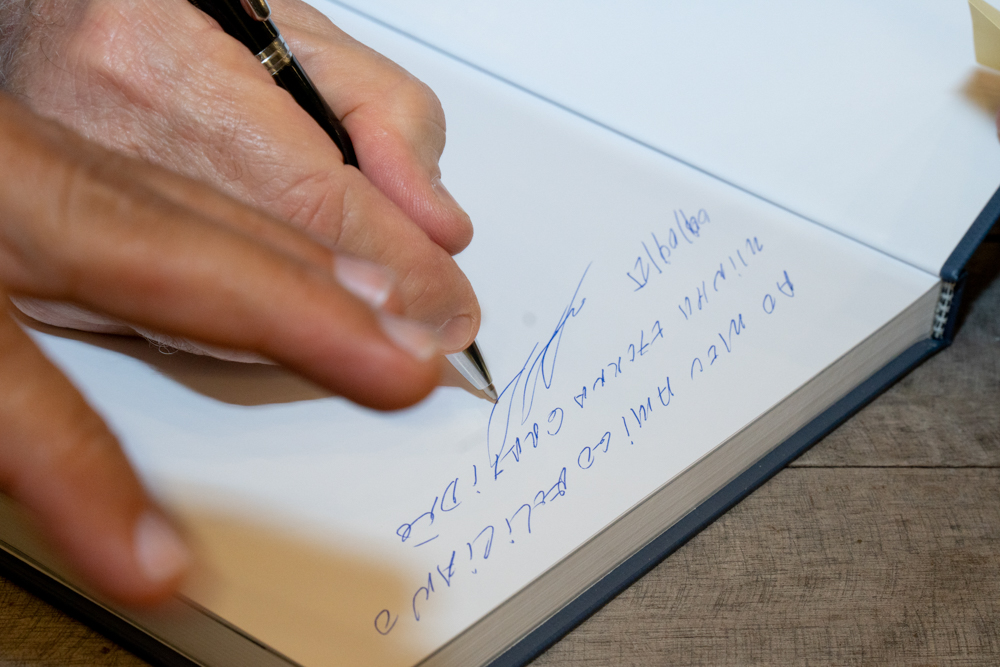 AO MEU AMIGO FELICIANO
MINHA ETERNA GRATIDÃO